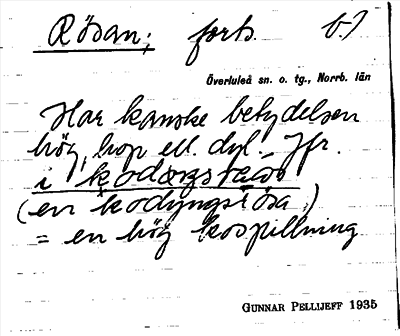 Rösan; forts. b.)
Överluleå sn. o. tg., Norrb. län
Har kanske betydelsen
hög, hop ell. dyl. Jfr.
i
(en kodyngsrösa)
= en hög kospillning
GUNNAR PELLIJEFF 1935